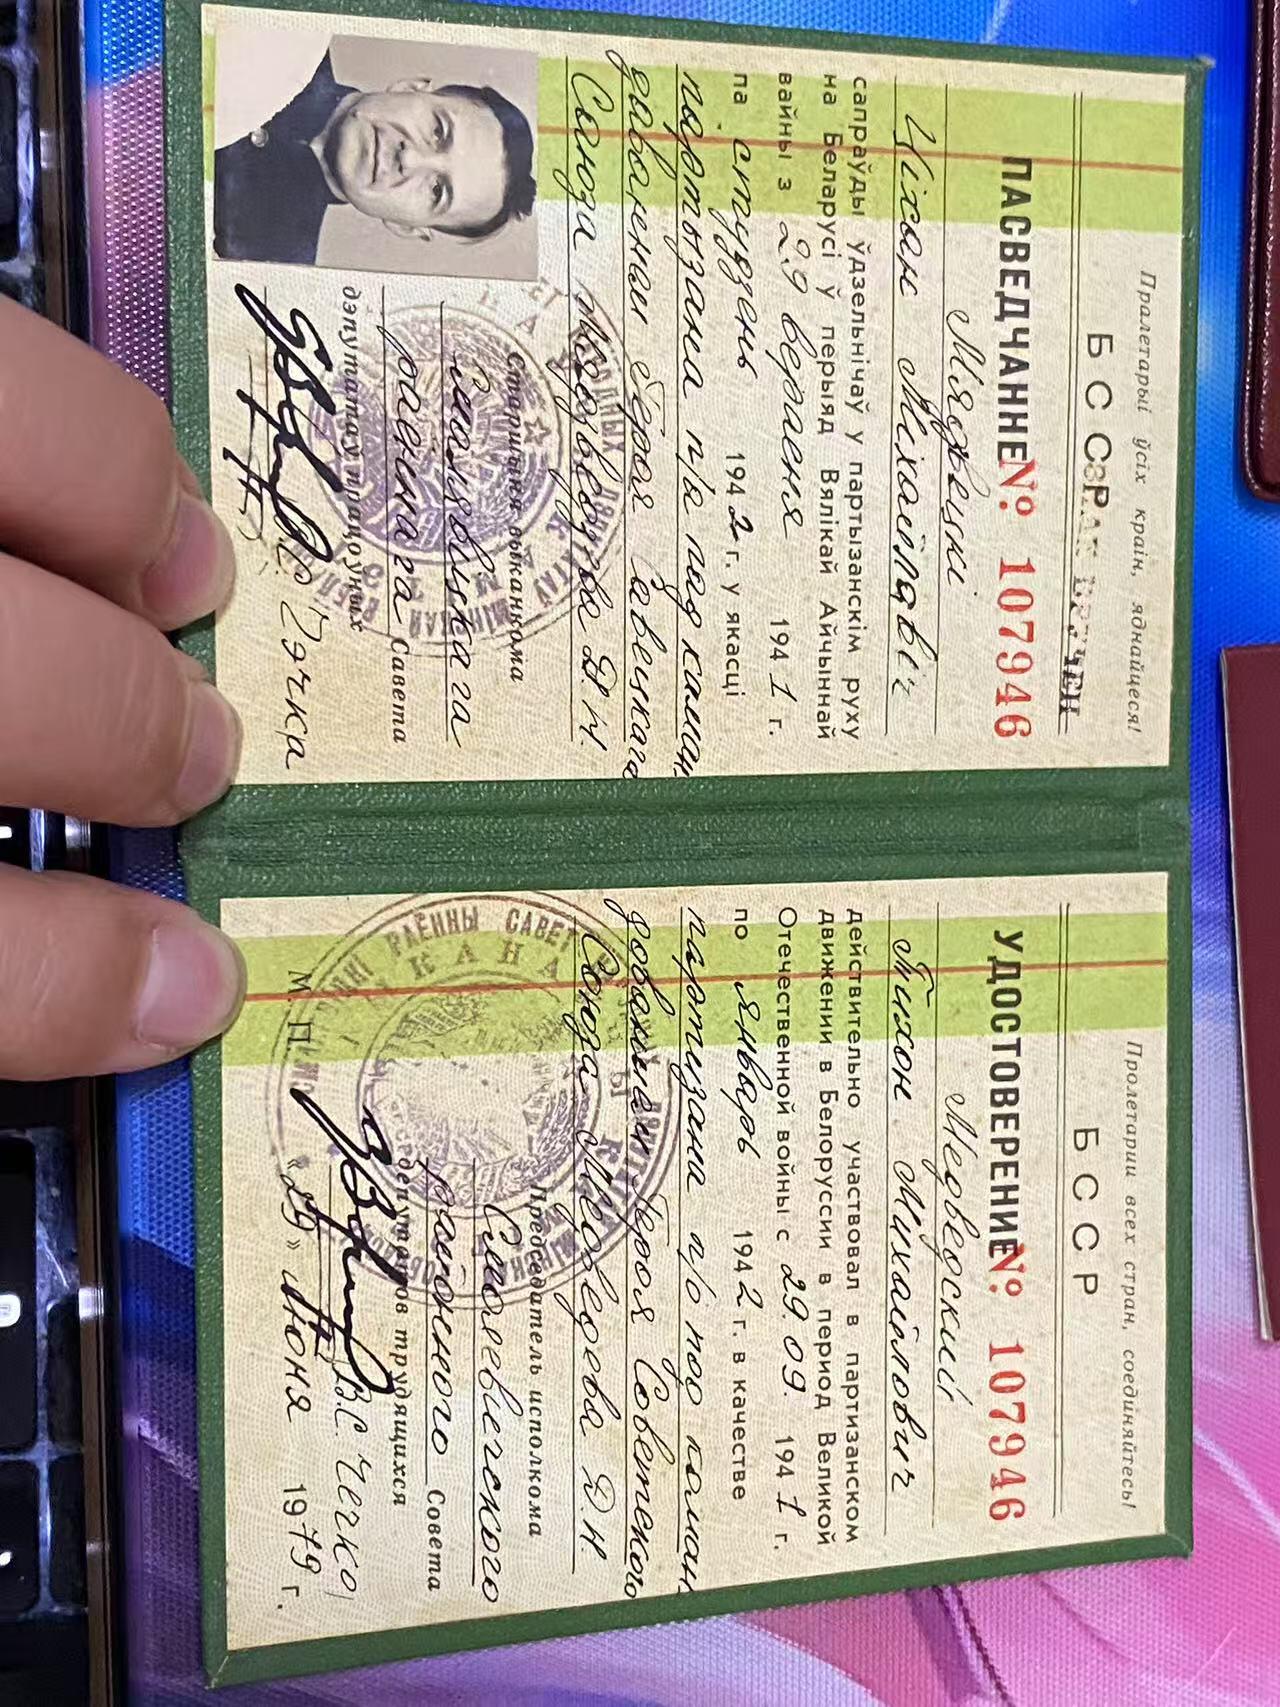 Пралетарыі ўсіх краін, яднайцеся!
БССР
ПАСВЕДЧАННЕ № 107946
Мядзведскі
Ціхан Міхайлавіч
сапраўды ўдзельнічаў у партызанскім руху
на Беларусі ў перыяд Вялікай Айчыннай
вайны з 29 верасня 1941 г.
па студзень 1942 г. у якасці
партызана п/а под каман
даваннем Героя Савецкага
Саюза Мядзведзева Д.Н.
Старшыня выканкома
Смалявіцкага
раённага Савета
дэпутатаў працоўных
Чэчка
Пролетарии всех стран, соединяйтесь!
БССР
УДОСТОВЕРЕНИЕ № 107946
Медведский
Тихон Михайлович
действительно участвовал в партизанском
движении в Белоруссии в период Великой
Отечественной войны с 29.09. 1941 г.
по январь 1942 г. в качестве
партизана п/о под коман
дованием Героя Советского
Союза Медведева Д.Н.
Председатель исполкома
Смолевичского
районного Совета
депутатов трудящихся
В.С. Чечко
М. П. «29» июня 1979 г.